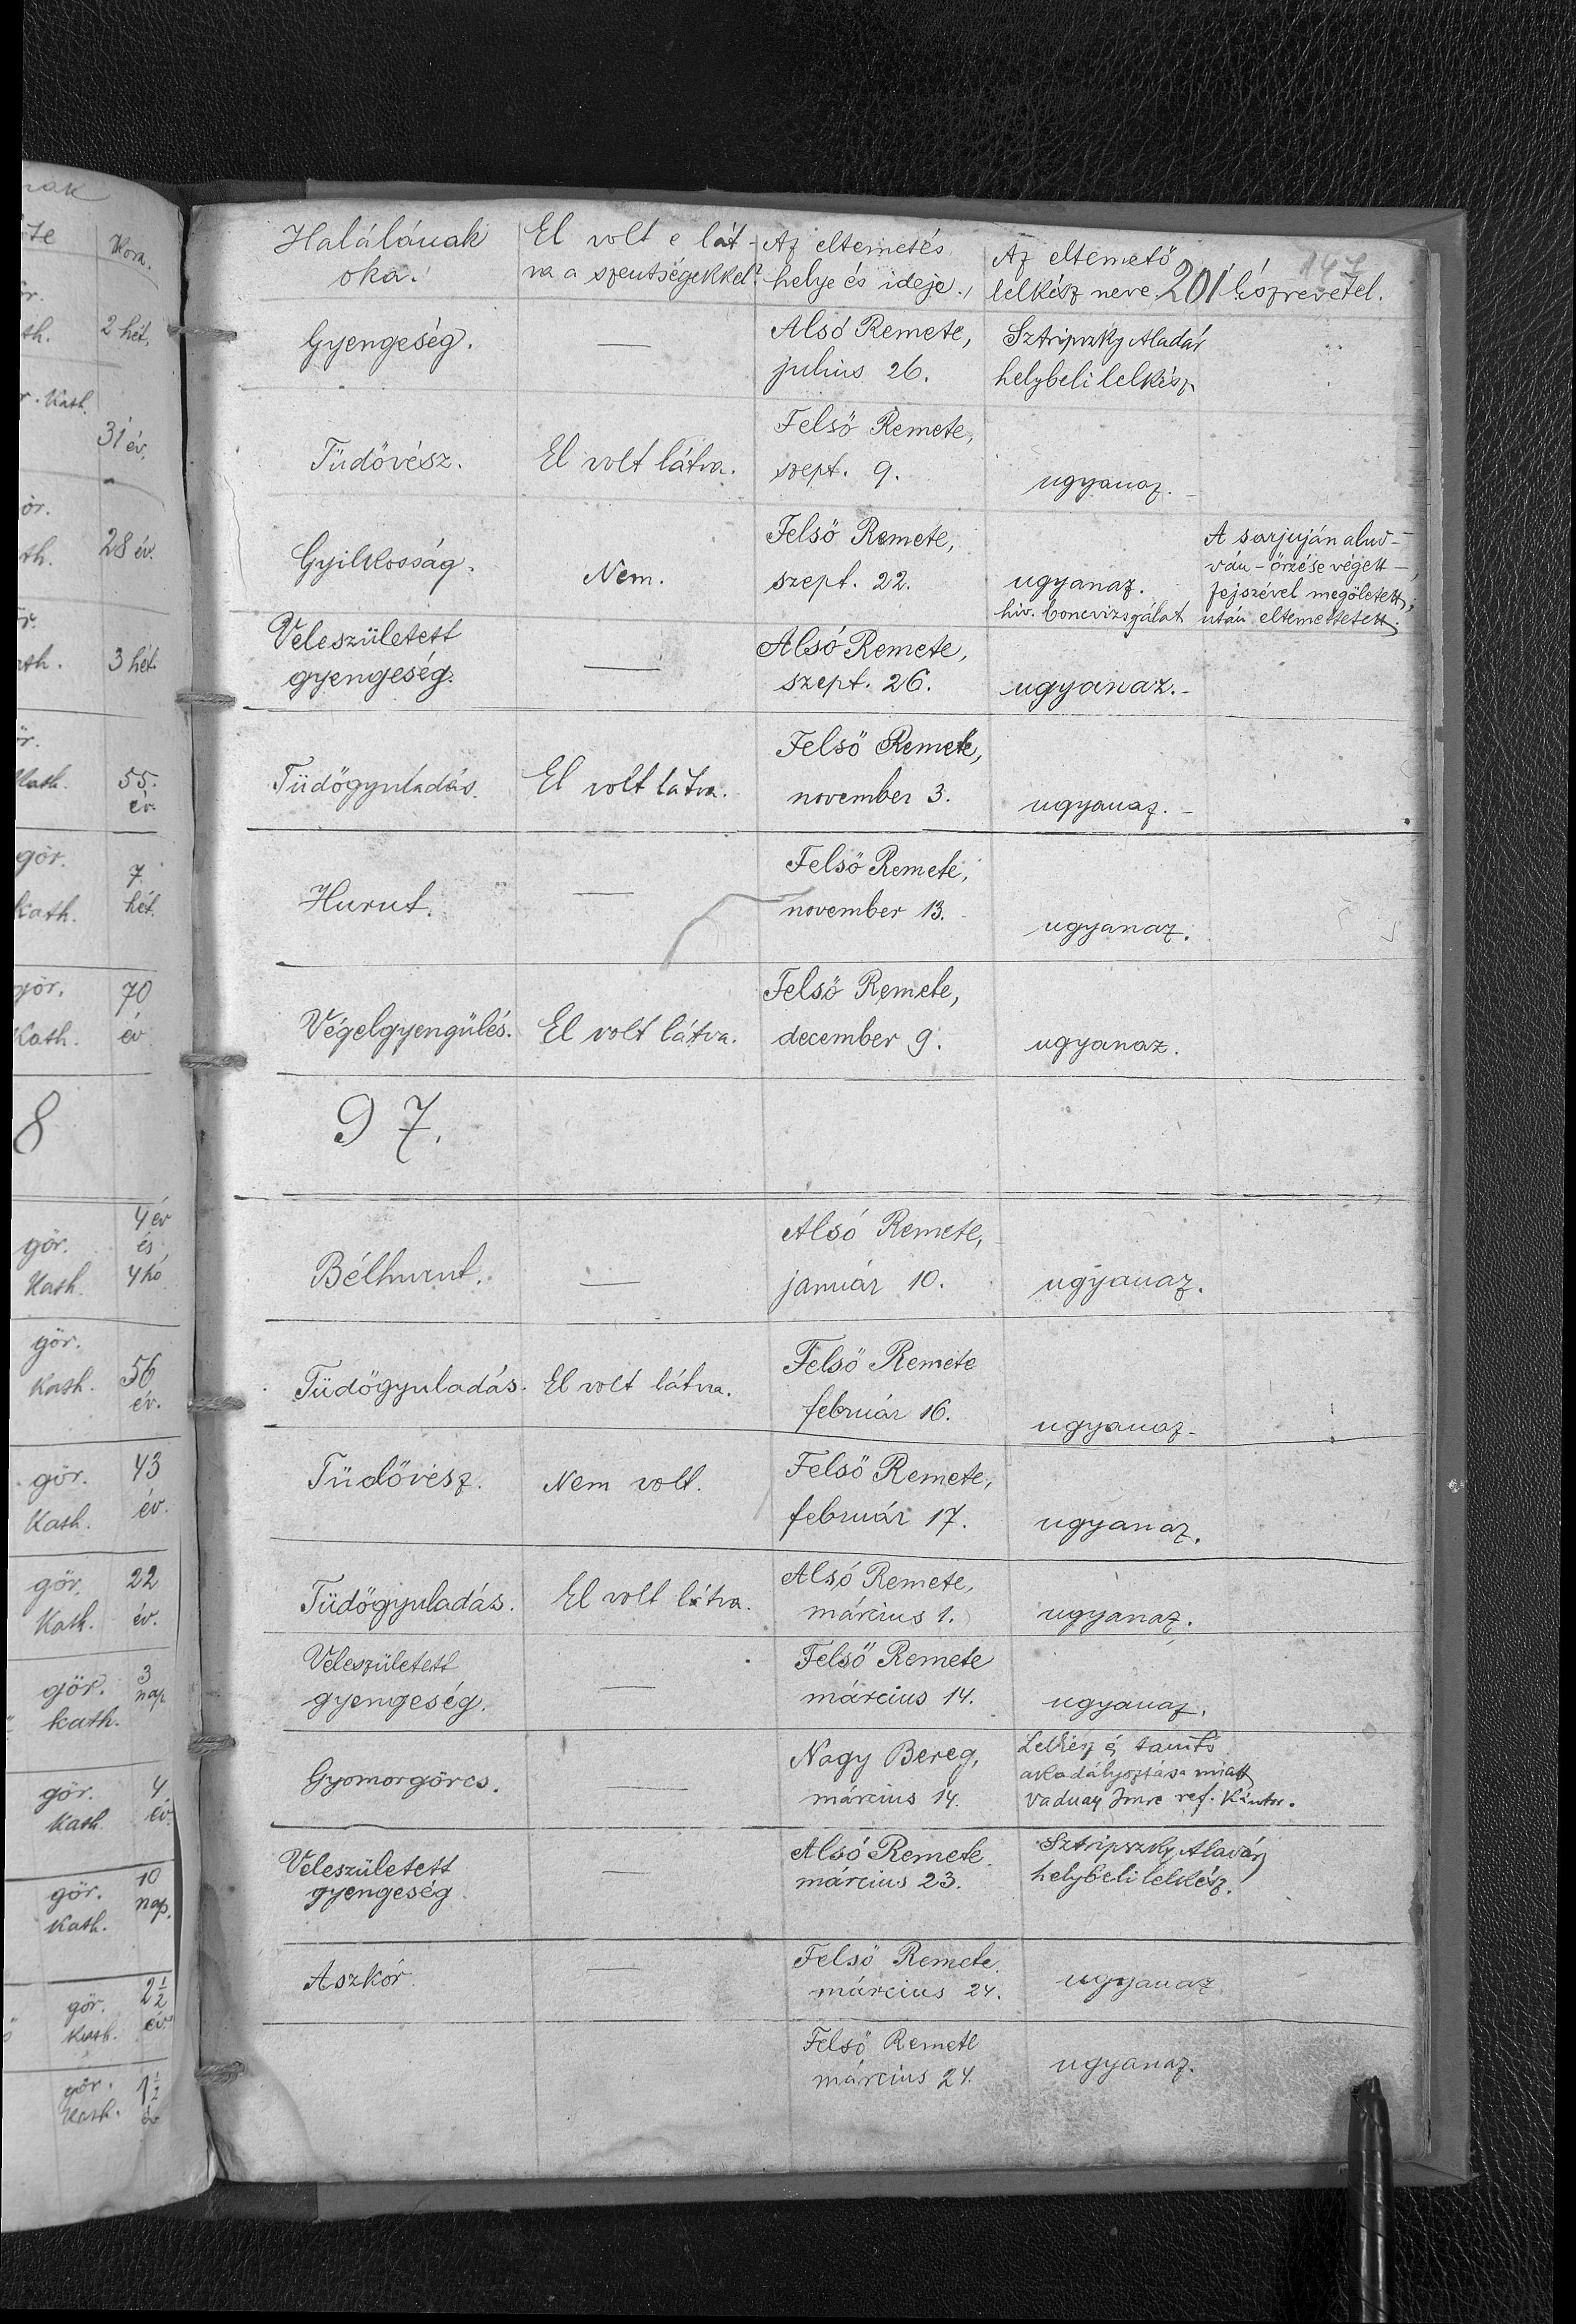 nak
te
Kora.
2 hét.
r. Kath.
31 év.
ör.
th.
28 év.
th.
3 hét
Kath.
55.
év.
gör.
Kath.
7.
hét.
gör.
Kath.
70
év
8
gör.
Kath.
4 év
és
4 hó
gör.
Kath.
56
év.
gör.
Kath.
43
év.
gör.
Kath.
22
év.
gör.
kath.
3
nap
gör.
Kath.
4
év.
gör.
Kath.
10
nap.
gör.
Kath.
2½
év.
gör.
Kath.
1½
év
Halálának
oka.
El volt e lát-
va a szentségekkel?
Az eltemetés
helye és ideje.
Az eltemető
lelkész neve.
147
201
Észrevétel.
Gyengeség.
—
Alsó Remete,
julius 26.
Sztripszky Aladár
helybeli lelkész
Tüdővész.
El volt látva.
Felső Remete,
szept. 9.
ugyanaz.-
Gyilkosság.
Nem.
Felső Remete,
szept. 22.
ugyanaz.
A sarjuján aluv-
ván - őrzése végett -,
fejszével megöletett;
hiv. boncvizsgálat után eltemettetett.
Veleszületett
gyengeség.
—
Alsó Remete,
szept. 26.
ugyanaz.-
Tüdőgyuladás.
El volt látva.
Felső Remete,
november 3.
ugyanaz.-
Hurut.
—
Felső Remete,
november 13.
ugyanaz.
Végelgyengülés.
El volt látva.
Felső Remete,
december 9.
ugyanaz.
97.
Bélhurut.
—
Alsó Remete,
január 10.
ugyanaz.
Tüdőgyuladás.
El volt látva.
Felső Remete
február 16.
ugyanaz-
Tüdővész.
Nem volt.
Felső Remete,
február 17.
ugyanaz.
Tüdőgyuladás.
El volt látva.
Alsó Remete,
március 1.
ugyanaz.
Veleszületett
gyengeség.
—
Felső Remete
március 14.
ugyanaz.
Gyomorgörcs.
—
Nagy Bereg,
március 14.
Lelkész és tanító
akadályoztása miatt
Vadnay Imre ref. Kántor.
Veleszületett
gyengeség
—
Alsó Remete.
március 23.
Sztripszky Aladár
helybeli lelkész.
Aszkór.
—
Felső Remete.
március 24.
ugyanaz
Felső Remete
március 24.
ugyanaz.